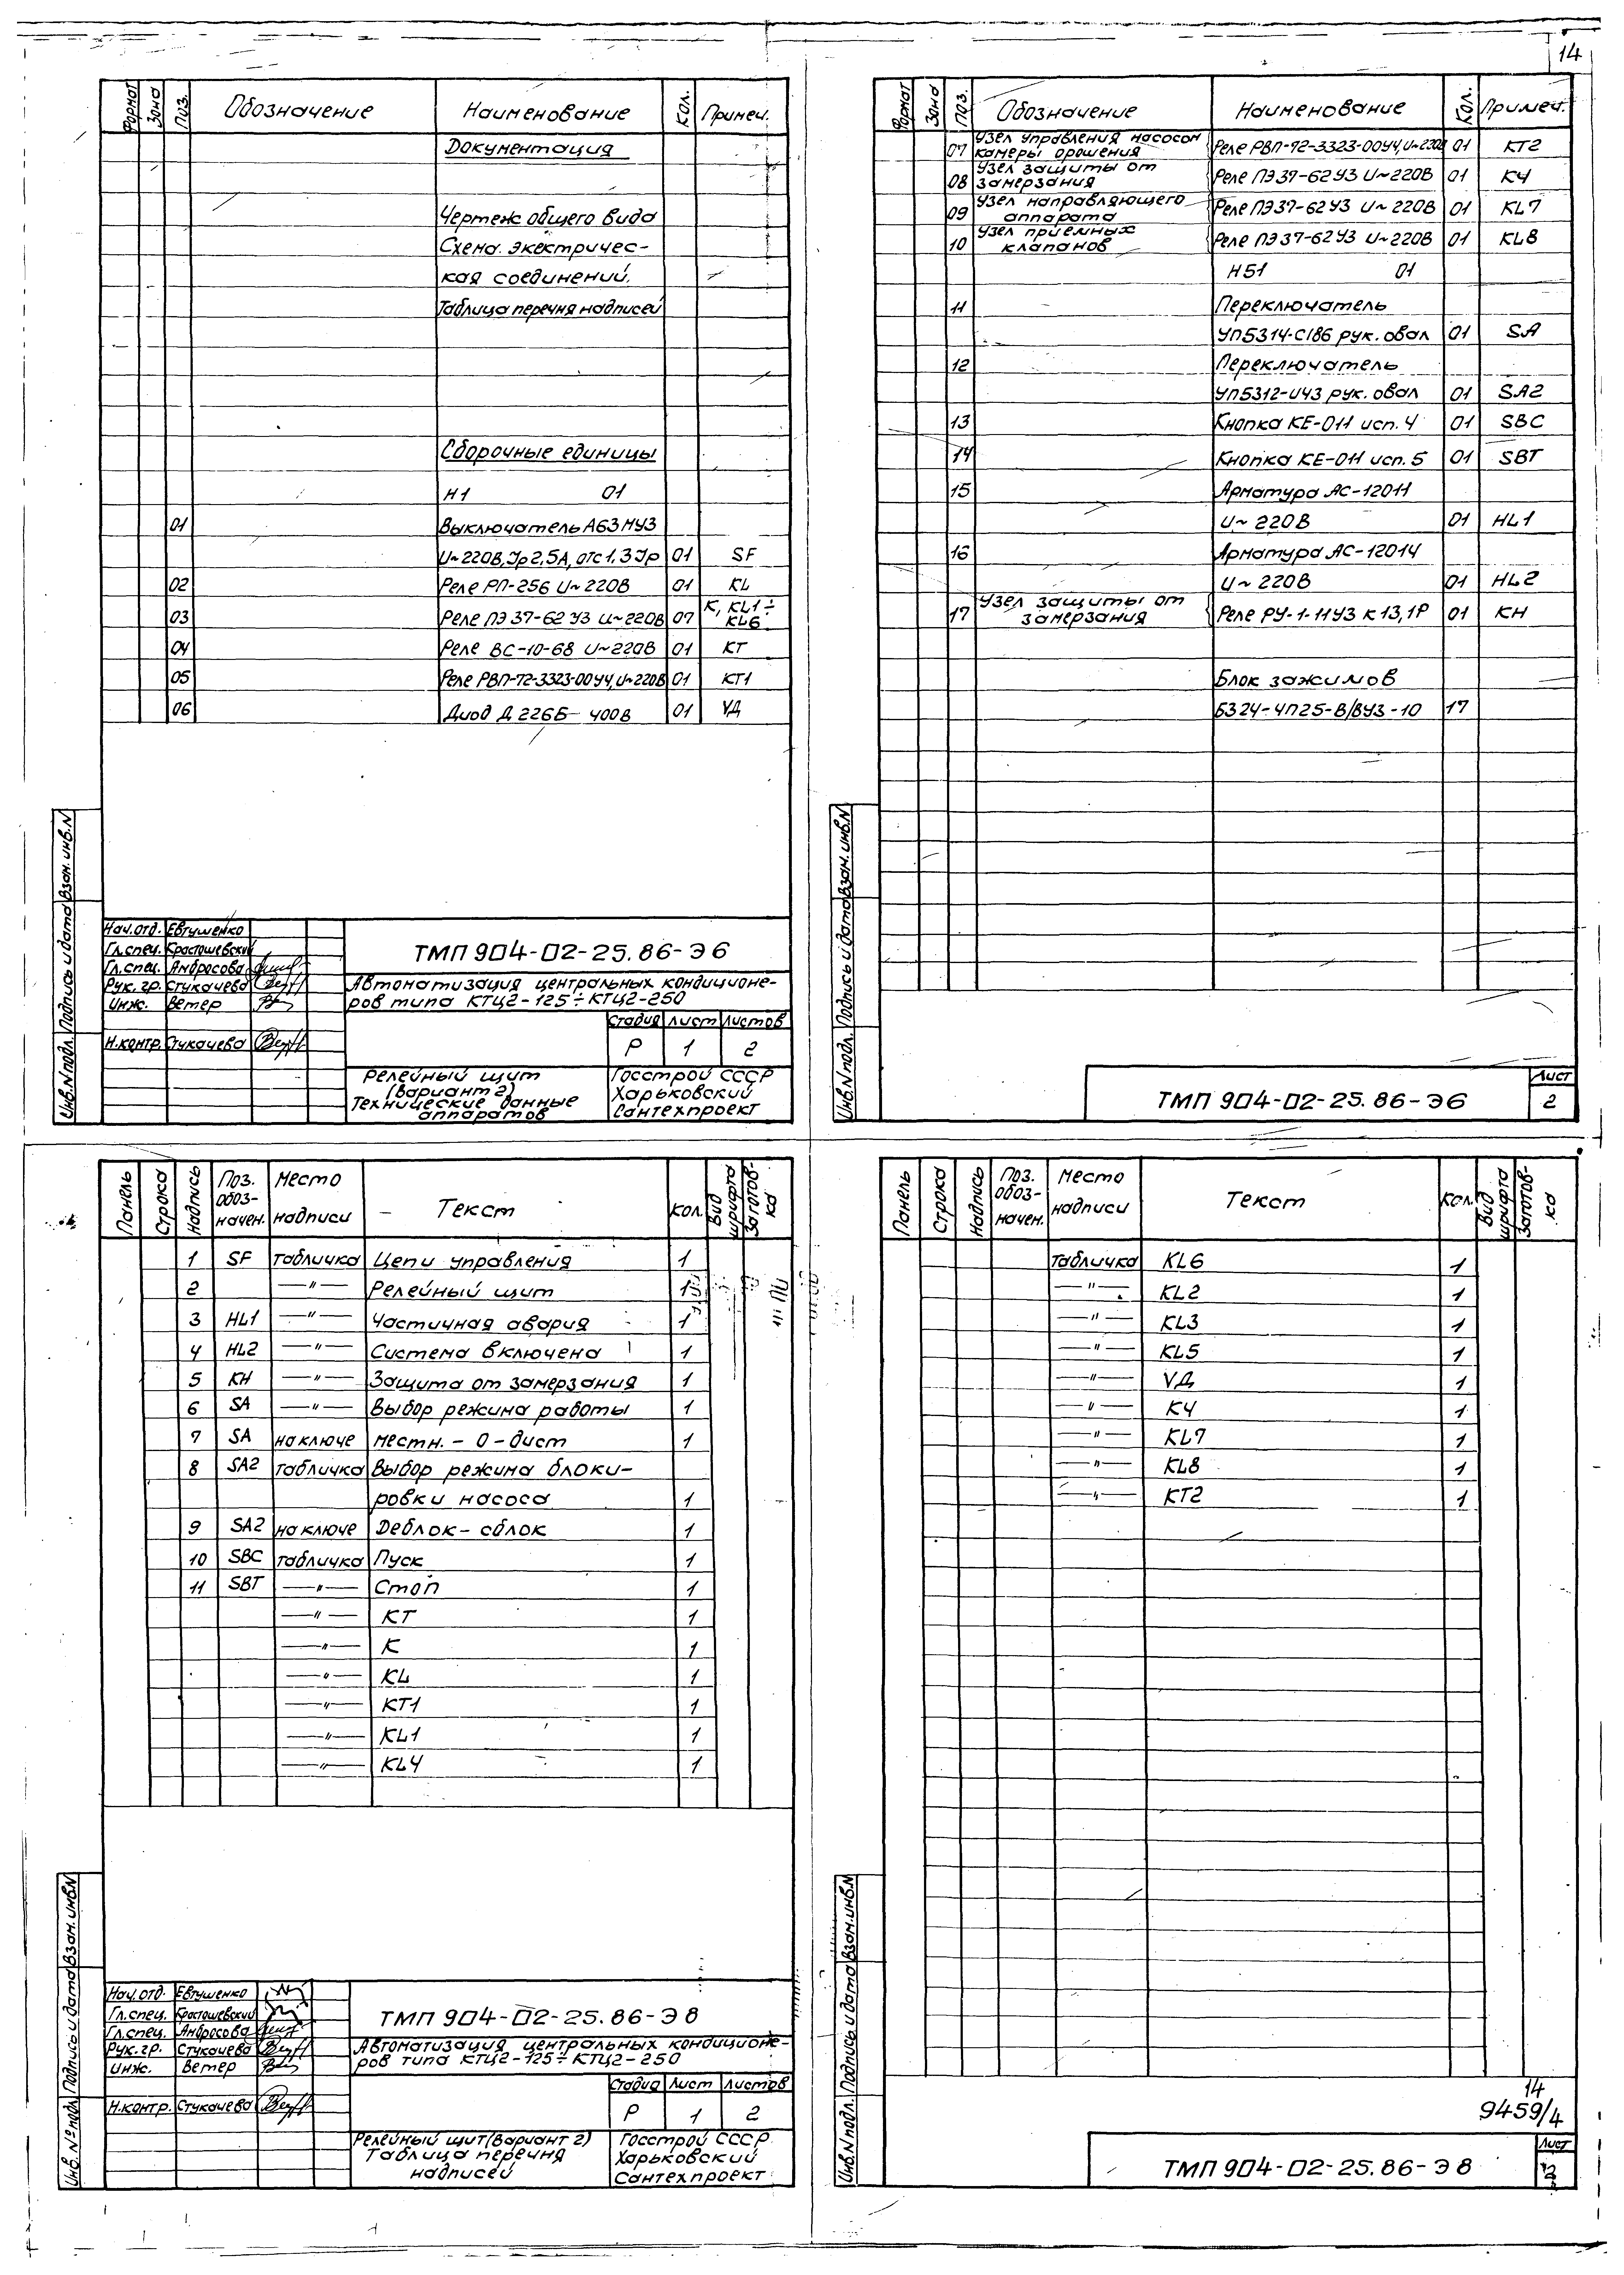 14
Формат Зона Поз. Обозначение Наименование Кол. Примеч.
Документация
Чертеж общего вида
Схема электричес-
кая соединений.
Таблица перечня надписей
Сборочные единицы
Н1 01
01 Выключатель А63МУ3
U~220В, Iр2,5А, отс 1,3 Iр 01 SF
02 Реле РП-256 U~220В 01 KL
03 Реле ПЭ37-62 У3 U~220В 07 K, KL1÷
KL6
04 Реле ВС-10-68 U~220В 01 КТ
05 Реле РВП-72-3323-00У4, U~220В 01 КТ1
06 Диод Д226Б-400В 01 VД
Инв.N подл. Подпись и дата Взам. инв.N
Нач.отд. Евтушенко
Гл.спец. Красташевский
Гл.спец. Амбросова
Рук.гр. Стукачева
Инж. Ветер
Н.контр. Стукачева
ТМП 904-02-25.86-Э6
Автоматизация центральных кондиционе-
ров типа КТЦ2-125÷КТЦ2-250
Стадия Лист Листов
Р 1 2
Релейный щит
(вариант 2)
Технические данные
аппаратов
Госстрой СССР
Харьковский
Сантехпроект
Формат Зона Поз. Обозначение Наименование Кол. Примеч.
07 Узел управления насосом
камеры орошения Реле РВП-72-3323-00У4, U~220В 01 КТ2
08 Узел защиты от
замерзания Реле ПЭ37-62У3 U~220В 01 К4
09 Узел направляющего
аппарата Реле ПЭ37-62У3 U~220В 01 KL7
10 Узел приемных
клапанов Реле ПЭ37-62У3 U~220В 01 KL8
Н51 01
11 Переключатель
УП5314-С186 рук. овал 01 SA
12 Переключатель
УП5312-И43 рук. овал 01 SA2
13 Кнопка КЕ-011 исп. 4 01 SBC
14 Кнопка КЕ-011 исп. 5 01 SBT
15 Арматура АС-12011
U~220В 01 HL1
16 Арматура АС-12014
U~220В 01 HL2
17 Узел защиты от
замерзания Реле РУ-1-11У3 К 13,1Р 01 КН
Блок зажимов
Б324-4П25-В/ВУ3-10 17
Инв.N подл. Подпись и дата Взам. инв.N
ТМП 904-02-25.86-Э6
Лист
2
Панель Строка Надпись Поз. обоз-начен. Место надписи Текст Кол. Вид шрифта Заготов-ка
1 SF табличка Цепи управления 1
2 —"— Релейный щит 1
3 HL1 —"— Частичная авария 1
4 HL2 —"— Система включена 1
5 КН —"— Защита от замерзания 1
6 SA —"— Выбор режима работы 1
7 SA на ключе местн. - 0 - дист 1
8 SA2 табличка Выбор режима блоки-
ровки насоса 1
9 SA2 на ключе Деблок-сблок 1
10 SBC табличка Пуск 1
11 SBT —"— Стоп 1
—"— КТ 1
—"— К 1
—"— KL 1
—"— КТ1 1
—"— KL1 1
—"— KL4 1
Инв. №подл. Подпись и дата Взам. инв.N
Нач.отд. Евтушенко
Гл.спец. Красташевский
Гл.спец. Амбросова
Рук.гр. Стукачева
Инж. Ветер
Н.контр. Стукачева
ТМП 904-02-25.86-Э8
Автоматизация центральных кондиционе-
ров типа КТЦ2-125÷КТЦ2-250
Стадия Лист Листов
Р 1 2
Релейный щит (вариант 2)
Таблица перечня
надписей
Госстрой СССР
Харьковский
Сантехпроект
Панель Строка Надпись Поз. обоз-начен. Место надписи Текст Кол. Вид шрифта Заготов-ка
Табличка KL6 1
—"— KL2 1
—"— KL3 1
—"— KL5 1
—"— VД 1
—"— К4 1
—"— KL7 1
—"— KL8 1
—"— КТ2 1
Инв.N подл. Подпись и дата Взам. инв.N
14
9459/4
ТМП 904-02-25.86-Э8
Лист
2